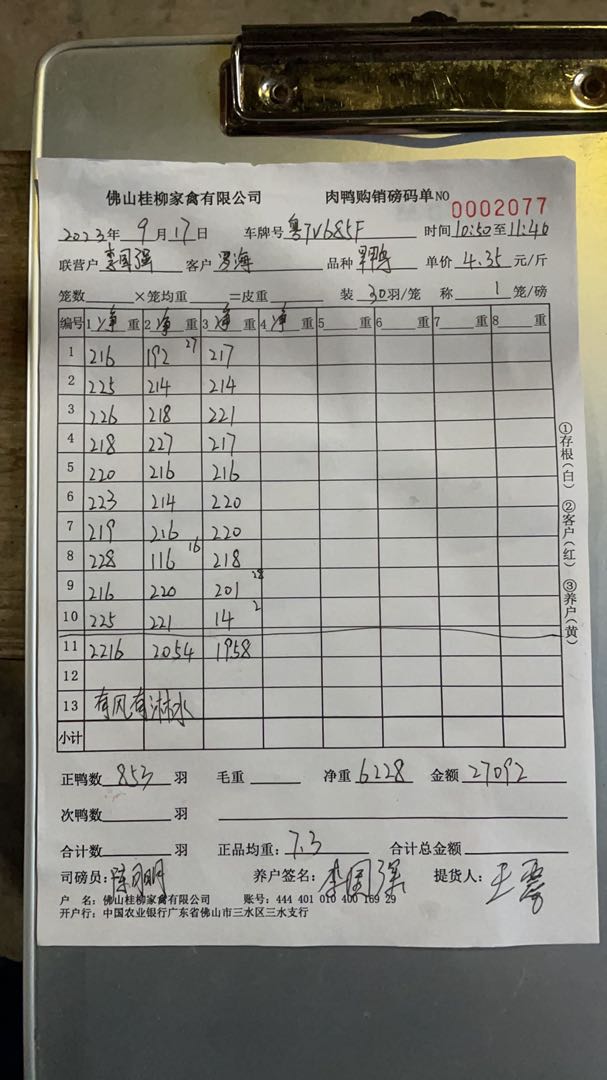 佛山桂柳家禽有限公司 肉鸭购销磅码单NO 0002077
2023年 9月17日 车牌号 粤TV685F 时间10:50至11:46
联营户 李国强 客户 罗海 品种 单价 4.35 元/斤
笼数 ×笼均重 =皮重 装 30羽/笼 称 1 笼/磅
编号 1净重 2净重 3净重 4净重 5 重 6 重 7 重 8 重
1 216 192 27 217
2 225 214 214
3 226 218 221
4 218 227 217
5 220 216 216
6 223 214 220
7 219 216 220
8 228 116 16 218
9 216 220 201 28
10 225 221 14 2
11 2216 2054 1958
12
13 有风有淋水
小计
①存根(白) ②客户(红) ③养户(黄)
正鸭数 853 羽 毛重 净重 6228 金额 27092
次鸭数 羽
合计数 羽 正品均重: 7.3 合计总金额
司磅员: 养户签名: 李国强 提货人:
户 名: 佛山桂柳家禽有限公司 账号: 444 401 010 400 169 29
开户行: 中国农业银行广东省佛山市三水区三水支行